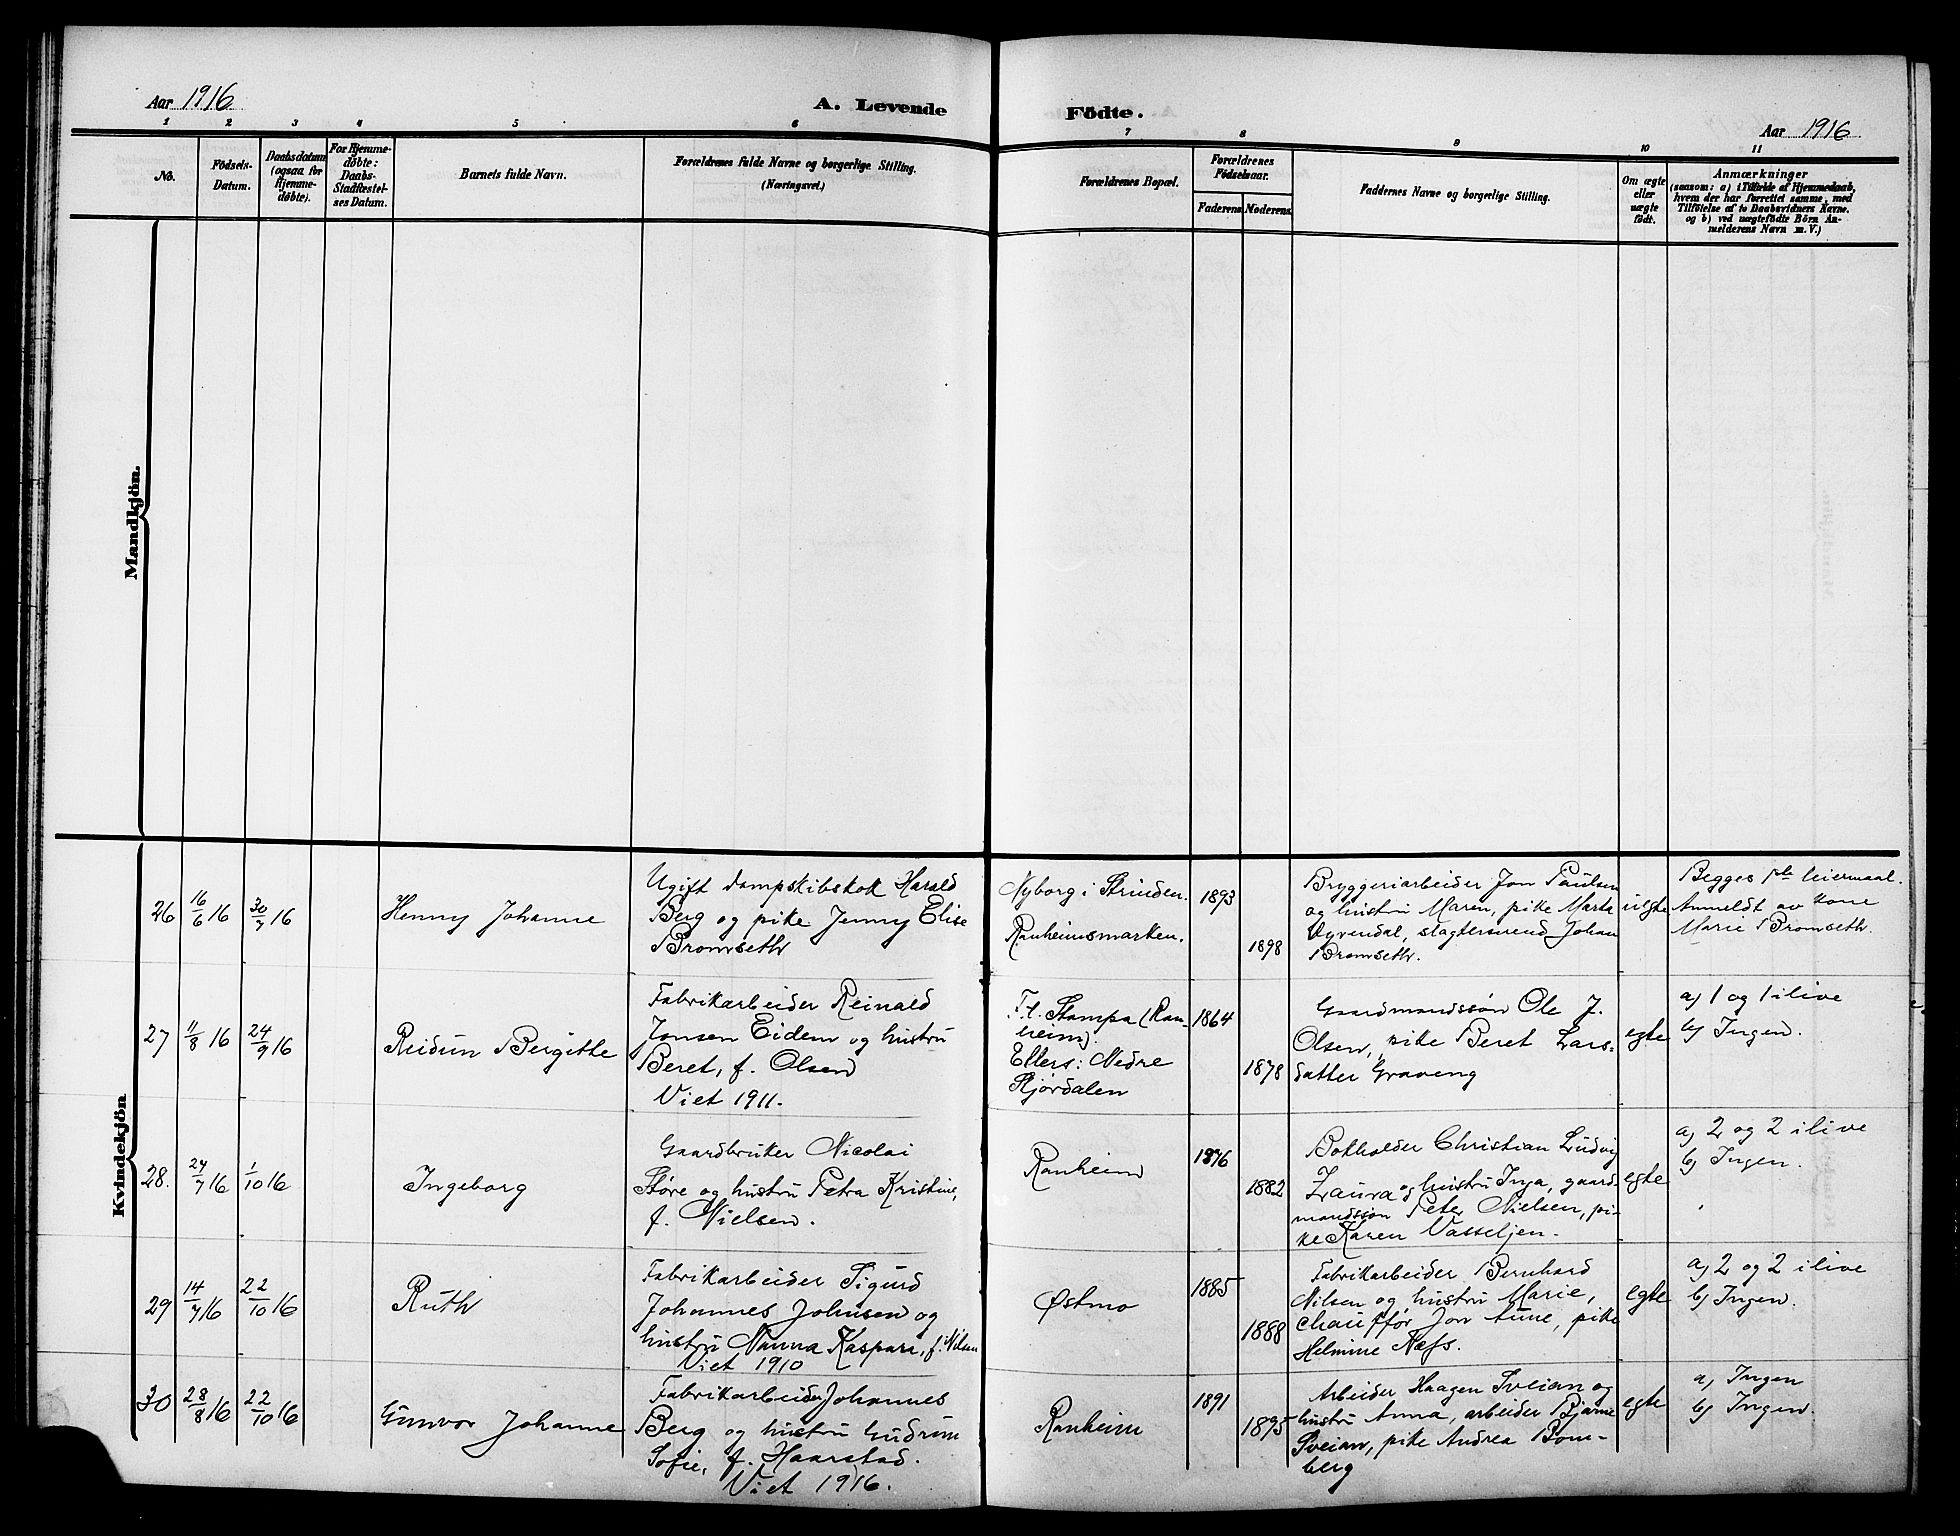 Aar 1916
A. Levende
Födte.
Aar 1916
1 2 3 4 5 6 7 8 9 10 11
No.
Födsels-
Datum.
Daabsdatum
(ogsaa for
Hjemme-
døbte).
For Hjemme-
døbte:
Daabs-
Stadfæstel-
ses Datum.
Barnets fulde Navn.
Forældrenes fulde Navne og borgerlige Stilling.
(Næringsvei.)
Forældrenes Bopæl.
Forældrenes
Födselsaar.
Faderens
Moderens
Faddernes Navne og borgerlige Stilling.
Om ægte
eller
uægte
födt.
Anmærkninger
(saasom: a) i Tilfælde af Hjemmedaab,
hvem der har forrettet samme, med
Tilföielse af to Daabsvidners Navne,
og b) ved uægtefödte Börn An-
melderens Navn m. V.)
Mandkjön.
Kvindekjön
26
16/6 16
30/7 16
Henny Johanne
Ugift dampskibskok Harald
Berg og pike Jenny Elise
Bromseth
Nyborg i Strinden.
Ranheimsmarken.
1893
1898
Bryggeriarbeider Jon Paulsen
og hustru Maren, pike Marta
Dyrendal, slagtersvend Johan
Bromseth.
uegte
Begges 1ste leiermaal.
Anmeldt av kone
Marie Bromseth.
27
11/8 16
24/9 16
Reidun Bergitte
Fabrikarbeider Reinald
Jonsen Eidem og hustru
Beret, f. Olsen
Viet 1911.
F.t. Stampa (Ran-
heim).
Ellers: Nedre
Stjørdalen
1864
1878
Gaardmandssøn Ole J.
Olsen, pike Beret Lars-
datter Graveng
egte
a) 1 og 1 ilive
b) Ingen.
28.
27/7 16
1/10 16
Ingeborg
Gaardbruker Nicolai
Støre og hustru Petra Kristine,
f. Nielsen.
Ranheim
1876
1882
Bokholder Christian Ludvig
Laura og hustru Inga, gaard-
mandssøn Peter Nielsen, pi-
ke Karen Vasseljen.
egte
a) 2 og 2 ilive
b) Ingen.
29
14/7 16
22/10 16
Ruth
Fabrikarbeider Sigurd
Johannes Johnsen og
hustru Nanna Kaspara, f. Nilsen
Viet 1910
Østmo
1885
1888
Fabrikarbeider Bernhard
Nilsen og hustru Marie,
chauffør Jon Aune, pike
Helmine Næss.
egte
a) 2 og 2 ilive
b) Ingen.
30
28/8 16
22/10 16
Gunvor Johanne
Fabrikarbeider Johannes
Berg og hustru Gudrun
Sofie, f. Haarstad.
Viet 1916.
Ranheim
1891
1895
Arbeider Haagen Sveian og
hustru Anna, arbeider Bjarne
Sveian, pike Andrea Bom-
berg
egte
a) Ingen
b) Ingen.